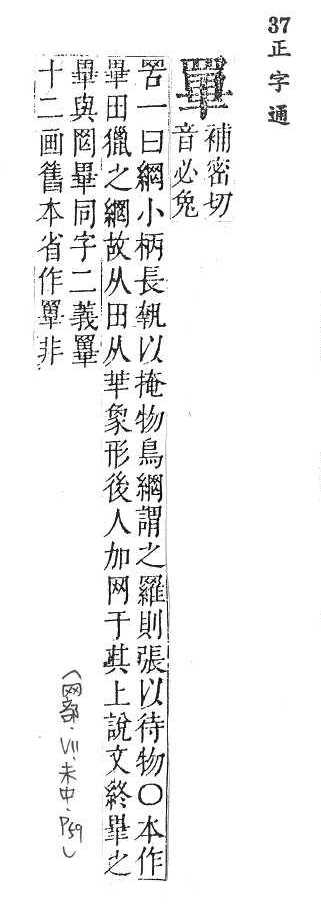 37正字通
罼
補密切
音必兔
罟一曰網小柄長執以掩物鳥網謂之羅則張以待物○本作
畢田獵之網故从田从𠦒象形後人加网于其上說文終畢之
畢與罔畢同字二義罼
十二画舊本省作非
(网部·VII·未中·P59)